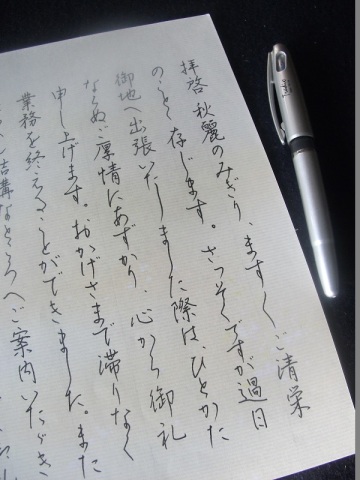 拝啓 秋麗のみぎり、ます〱ご清栄
のことと存じます。さっそくですが過日
御地へ出張いたしました際は、ひとかた
ならぬご厚情にあずかり、心から御礼
申し上げます。おかげさまで滞りなく
業務を終えることができました。また
結構なところへご案内いただき